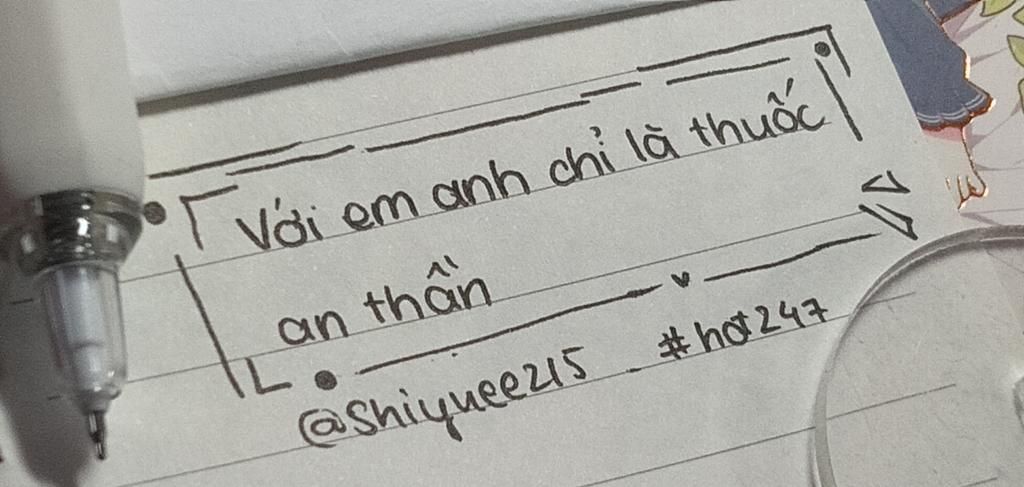 Với em anh chỉ là thuốc
an thần
@shiyuee215 #hot247